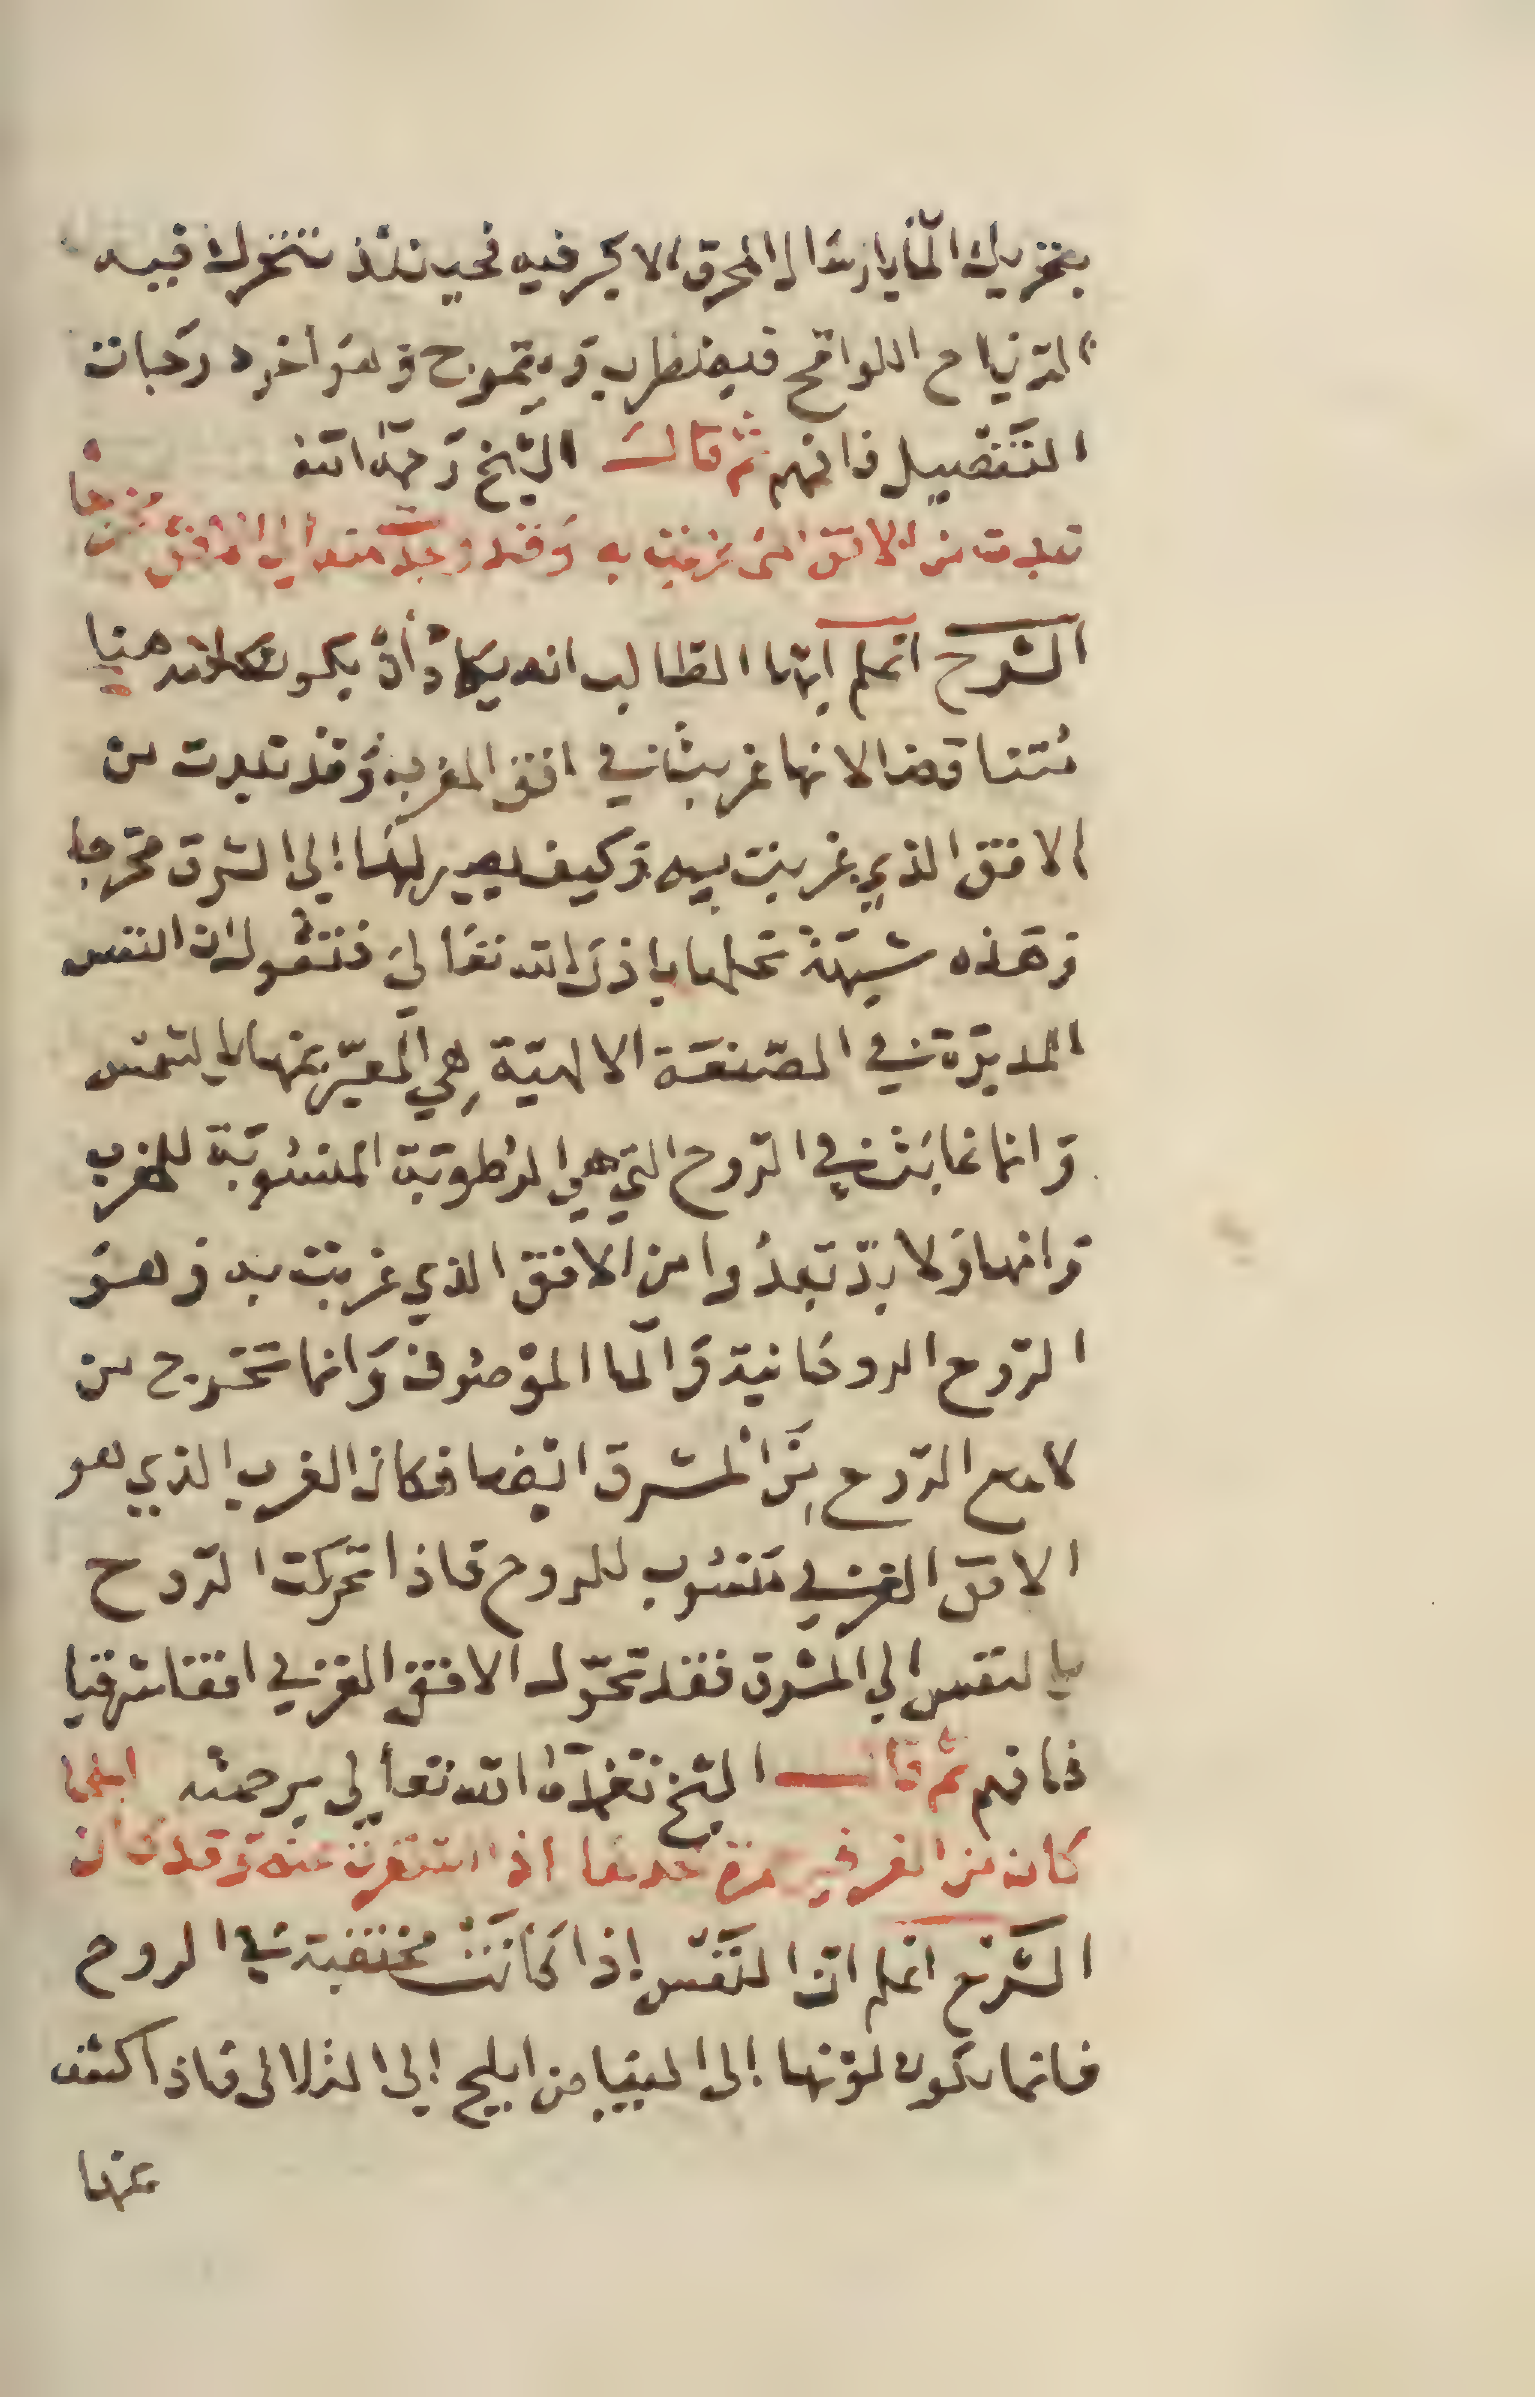 بتحريك الماء بارسال المحرق الاكبر فيه فحينئذ تتحرك فيه
الرياح اللواقح فيضطرب ويتموج وهو اخر درجات
التفصيل فافهم ثم قال الشيخ رحمه الله
تعدت من الافق الذي غربت به وقد وجدت منه الي الافق مخرجا
الشرح اعلم ايها الطالب انه يكاد أن يكون كلامه هنا
متناقضا لانها غربت في افق المغرب وقد تبدت من
الافق الذي غربت به وكيف يصير لها إلي الشرق مخرجا
وهذه شبهة نحلها باذن الله تعالي فنقول ان النفس
المدبرة في الصنعة الالهية هي المعبر عنها بالشمس
وانما غابت في الروح التي هي الرطوبة المنسوبة للغرب
وانها ولا بد تبدوا من الافق الذي غربت به وهو
الروح الروحانية والما الموصوف وانما تخرج من
لامع الروح من المشرق ايضا فكان الغرب الذي هو
الافق الغربي منسوب للروح فاذا تحركت الروح
بالنفس الي المشرق فقد تحول الافق الغربي افقا شرقيا
فافهم ثم قال الشيخ تغمده الله تعالي برحمته
كان من
الشرح اعلم ان النفس إذا كانت مختفية في الروح
فانما يكون لونها إلى البياض ابلج إلى التلالى فاذا كشف
عنها